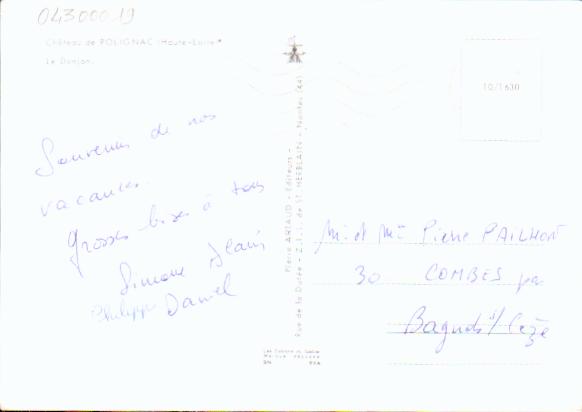 043000 19
Château de POLIGNAC (Haute-Loire)
Le Donjon.
Souvenirs de nos
vacances.
Grosses bises à tous
Simone Alain
Philippe Daniel
Pierre ARTAUD - Editeurs -
Rue de la Durée - Z.I.L. de ST. HERBLAIN - Nantes (44)
10/1630
M. et Mme Pierre PAILHON
30 COMBES par
Bagnols s/ Cèze